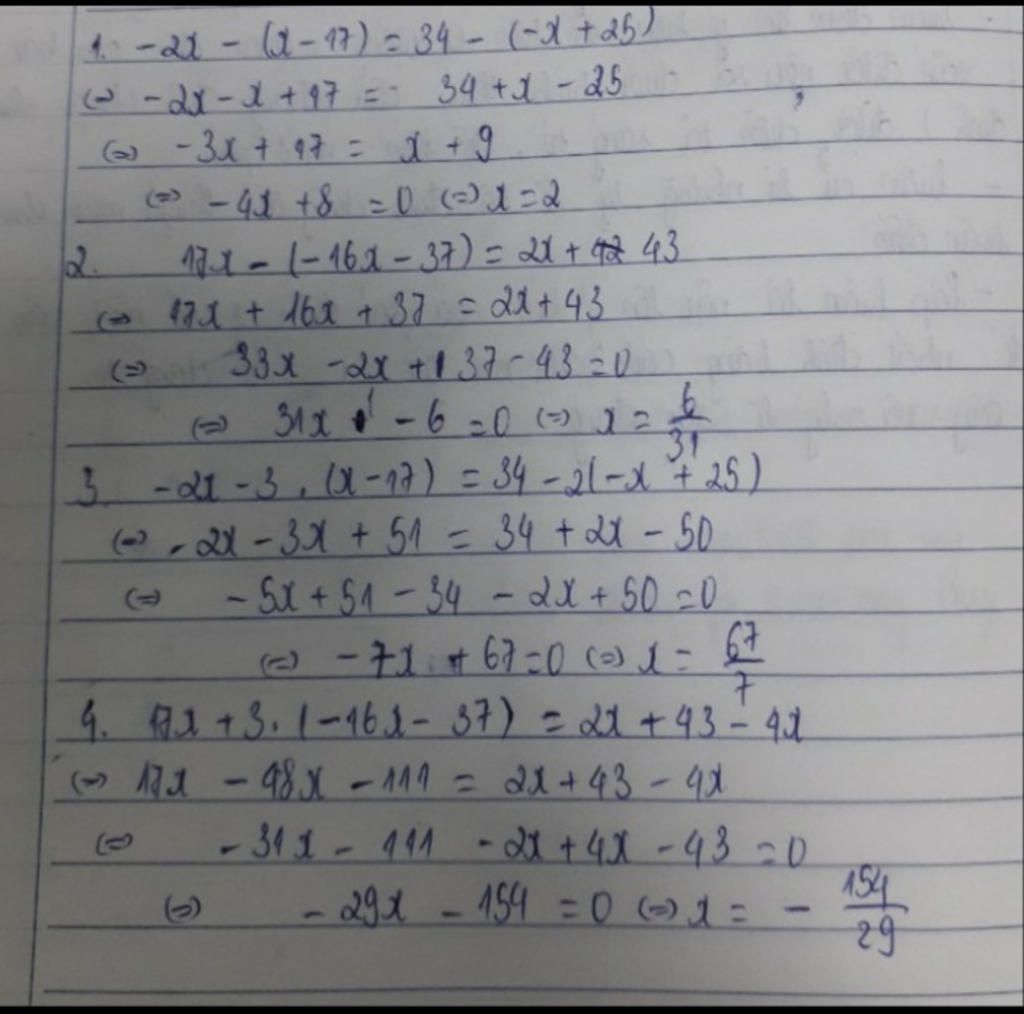 1. -2x - (x - 17) = 34 - (-x + 25)
(=) -2x - x + 17 = 34 + x - 25
(=) -3x + 17 = x + 9
(=) -4x + 8 = 0 (=) x = 2
2. 17x - (-16x - 37) = 2x + 43
(=) 17x + 16x + 37 = 2x + 43
(=) 33x - 2x + 37 - 43 = 0
(=) 31x - 6 = 0 (=) x = 6/31
3. -2x - 3.(x - 17) = 34 - 2(-x + 25)
(=) -2x - 3x + 51 = 34 + 2x - 50
(=) -5x + 51 - 34 - 2x + 50 = 0
(=) -7x + 67 = 0 (=) x = 67/7
4. 17x + 3.(-16x - 37) = 2x + 43 - 4x
(=) 17x - 48x - 111 = 2x + 43 - 4x
(=) -31x - 111 - 2x + 4x - 43 = 0
(=) -29x - 154 = 0 (=) x = - 154/29